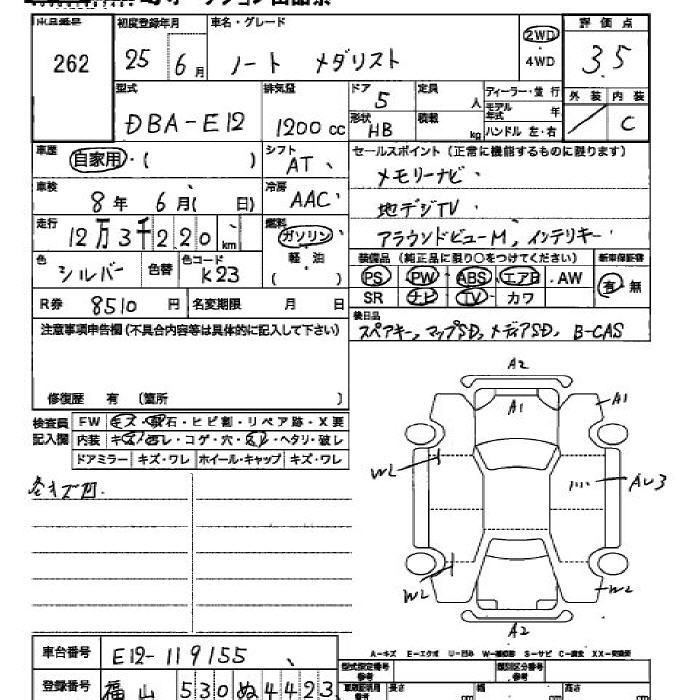 262
初度登録年月
25年 6月
車名・グレード
ノート メダリスト
2WD
4WD
評価点
3.5
外装 内装
／ C
型式
DBA-E12
排気量
1200cc
ドア
5
形状
HB
定員 人
積載 kg
ディーラー・並行
モデル年式 年
ハンドル 左・右
車歴
自家用・( )
シフト
AT
車検
8年 6月( 日)
冷房
AAC
走行
12万3千220km
燃料
ガソリン
軽油
( )
色
シルバー
色替
色コード
K23
R券 8510円
名変期限 月 日
セールスポイント (正常に機能するものに限ります)
メモリーナビ、
地デジTV、
アラウンドビューM, インテリキー
装備品 (純正品に限り○をつけてください)
新車保証書
PS PW ABS エアB .AW
SR ナビ TV カワ
有・無
後日品
スペアキー, マップSD, メディアSD, B-CAS
注意事項申告欄 (不具合内容等は具体的に記入して下さい)
修復歴 有 〔箇所 〕
検査員記入欄
FW キズ・飛石・ヒビ割・リペア跡・X要
内装 キズ・汚レ・コゲ・穴・スレ・ヘタリ・破レ
ドアミラー キズ・ワレ ホイール・キャップ キズ・ワレ
A2
A1
A1
WL
AU3
WL
A2
A-キズ E-エクボ U-凹み W-補修跡 S-サビ C-腐食 XX-交換済
車台番号
E12-119155
登録番号
福山 530 ぬ 4423
型式指定番号
類別区分番号
長さ cm
幅 cm
高さ cm